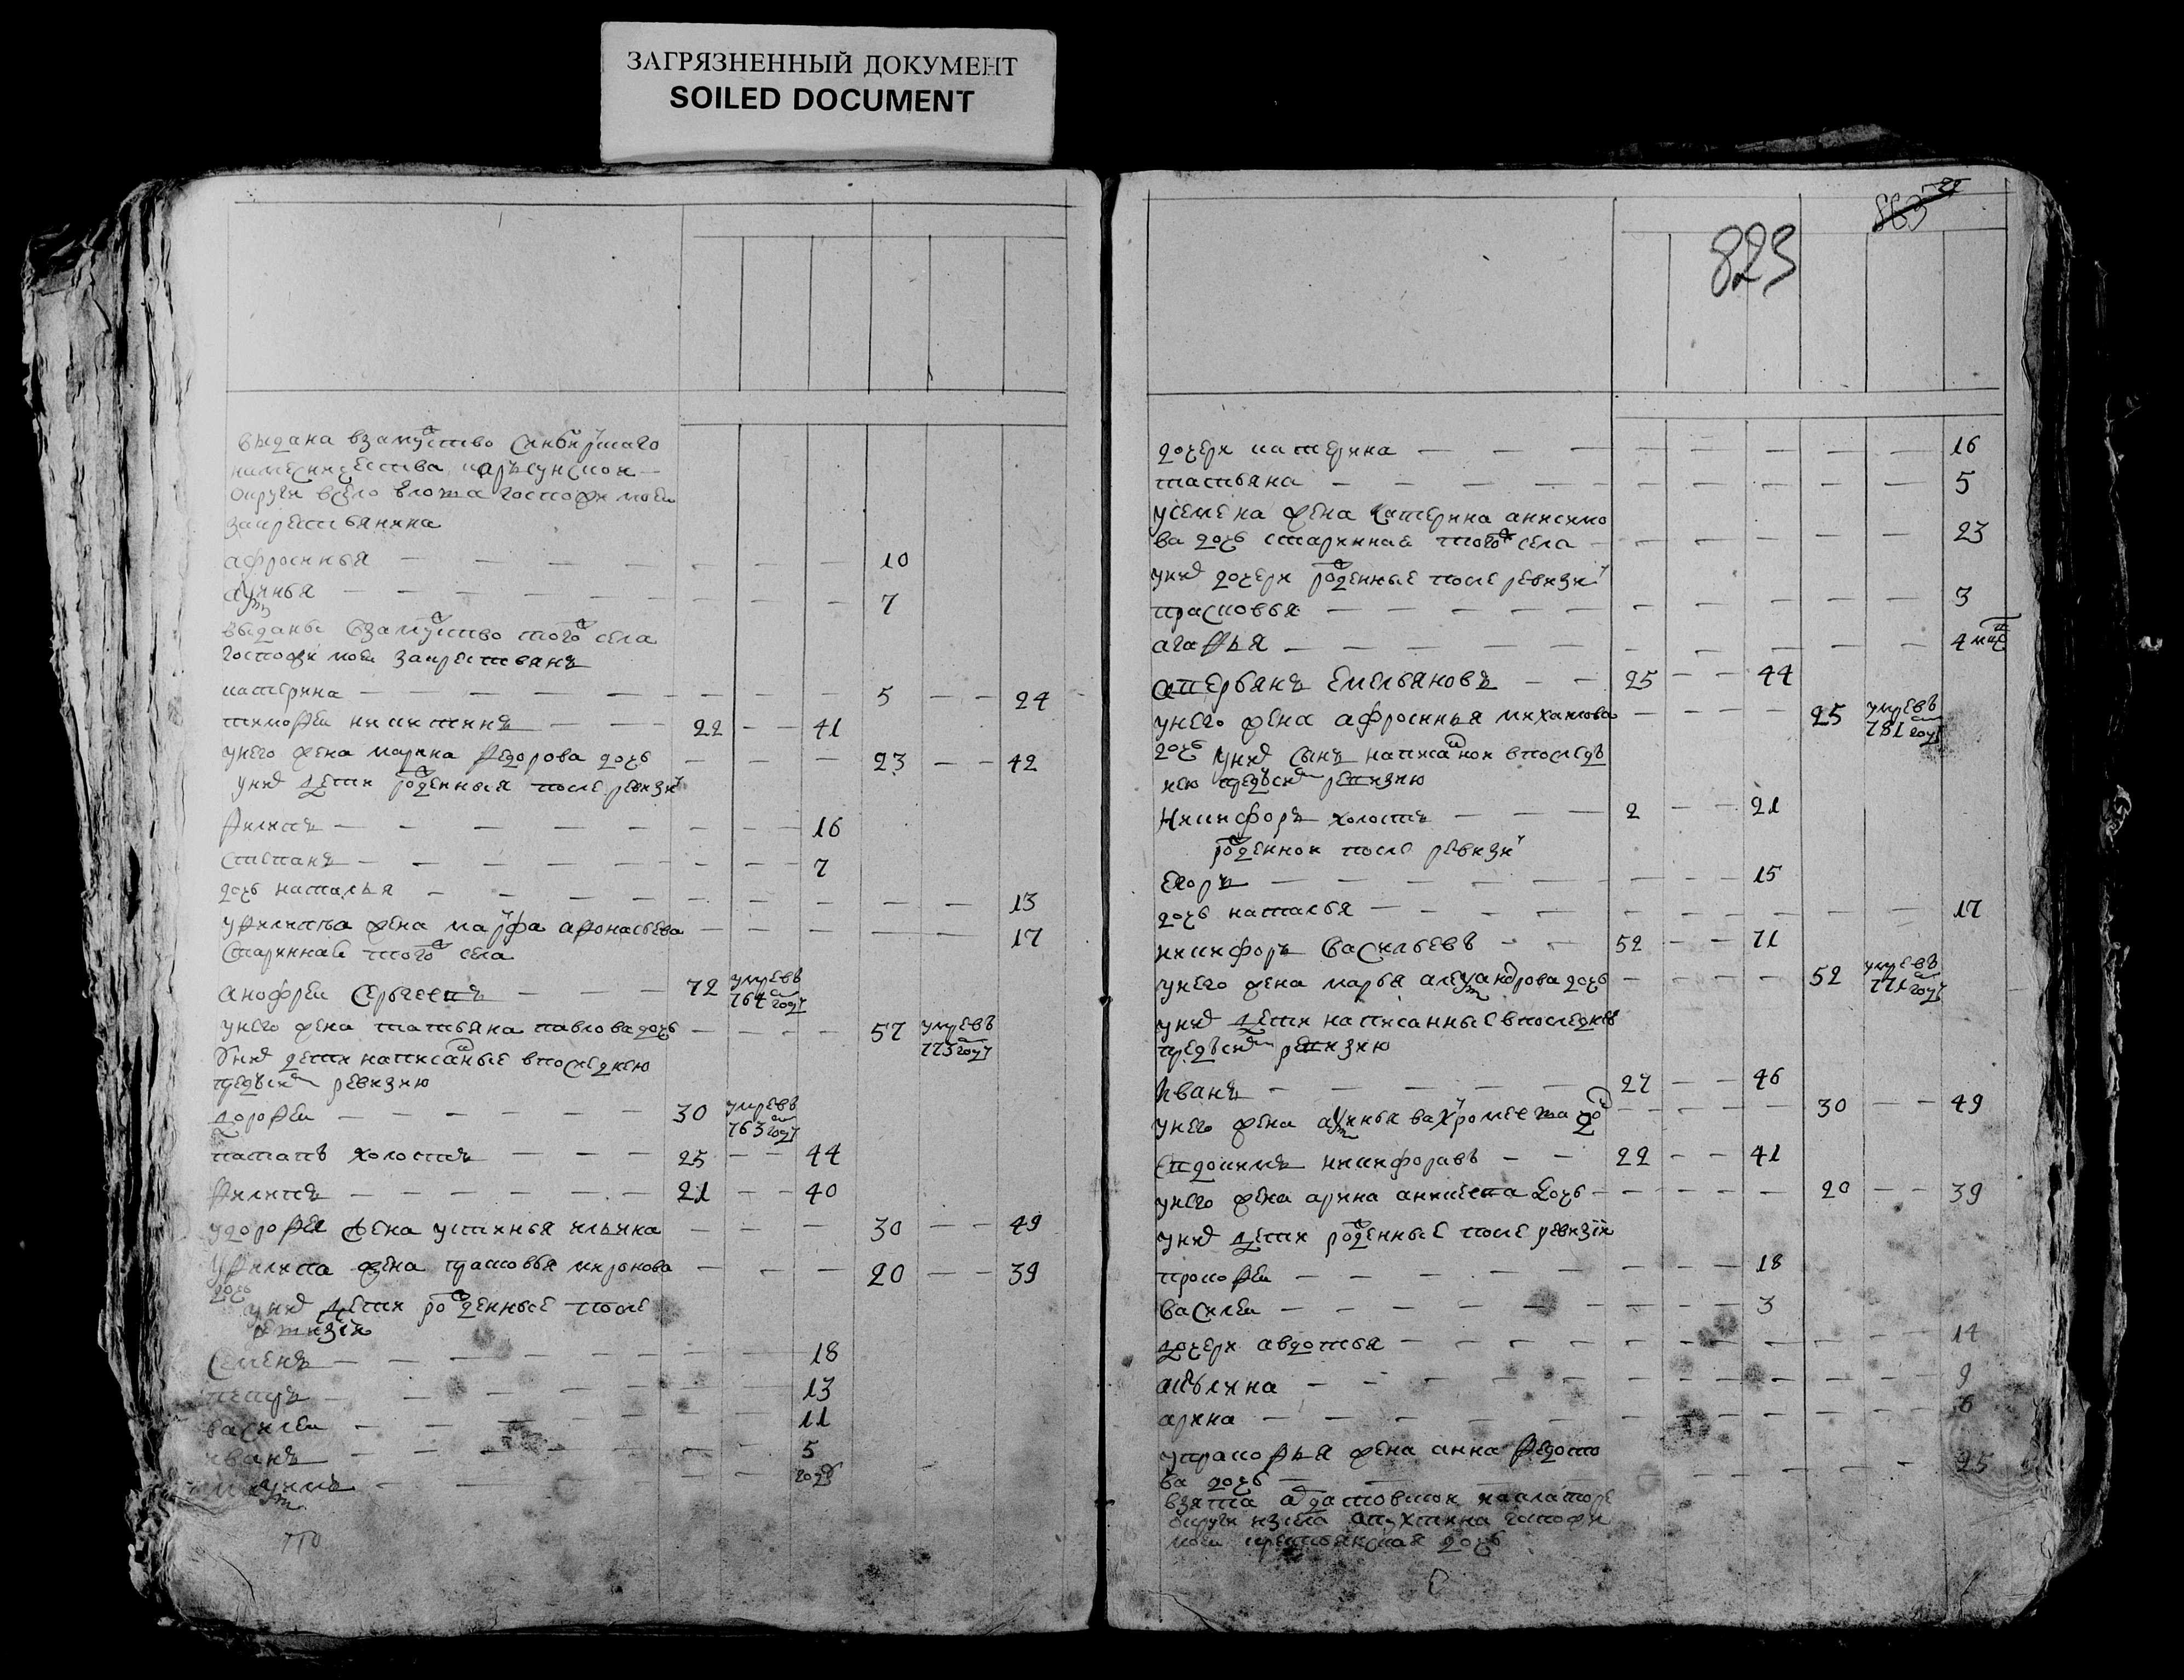 ЗАГРЯЗНЕННЫЙ ДОКУМЕНТ
SOILED DOCUMENT
выдана взамуство синбирскаго
намесничества карсунской
округи в село
закрестьянина
афросинья — 10
аксинья — 7
выданы взамуство того села
госпожи моей закрестьянъ
катерина — 5 — 24
тимофеи никитинъ — 22 — 41
унего жена марина федорова дочь — 23 — 42
уних дети рожденныя после ревизи
филипъ — 16
степанъ — 7
дочь наталья — 13
уфилипа жена марфа афонасьева — 17
стариннае того села
анофреи сергеевъ — 72 умре въ 764 году
унего жена татьяна павлова дочь — 57 умре въ 773 году
уних дети написаные впоследнею
предъ сим ревизию
дорофеи — 30 умре въ 763 году
патапъ холостъ — 25 — 44
филипъ — 21 — 40
удорофея жена устинья ильина — 30 — 49
уфилипа жена прасковья миронова — 20 — 39
дочь
уних дети рожденные после
ревизiи
семенъ — 18
петръ — 13
василеи — 11
иванъ — 5
максимъ — году
863
823
дочери катерина — 16
татьяна — 5
усемена жена катерина анисимо
ва дочь стариннае того села — 23
уних дочери рожденные после ревизи
прасковья — 3
агафья — 4 мца
аверьянъ емельяновъ — 25 — 44
унего жена афросинья — 25 умре въ 781 году
дочь уних сынъ написанои впоследъ
нею предъ сим ревизию
никифоръ холостъ — 2 — 21
рожденнои после ревизи
егоръ — 15
дочь наталья — 17
никифоръ васильевъ — 52 — 71
унего жена марья александрова дочь — 52 умре въ 771 году
уних дети написанные впоследнею
предъ сим ревизию
иванъ — 27 — 46
унего жена аксинья вахромеева до — 30 — 49
евдокимъ никифоравъ — 22 — 41
унего жена арина аникеева дочь — 20 — 39
уних дети рожденные после ревизiи
прокофеи — 18
василеи — 3
дочери авдотья — 14
акулина — 9
арина — 6
упрокофья жена анна федото
ва дочь — 25
взята алаторе
округи изсела апухтина госпожи
моей крестьянская дочь